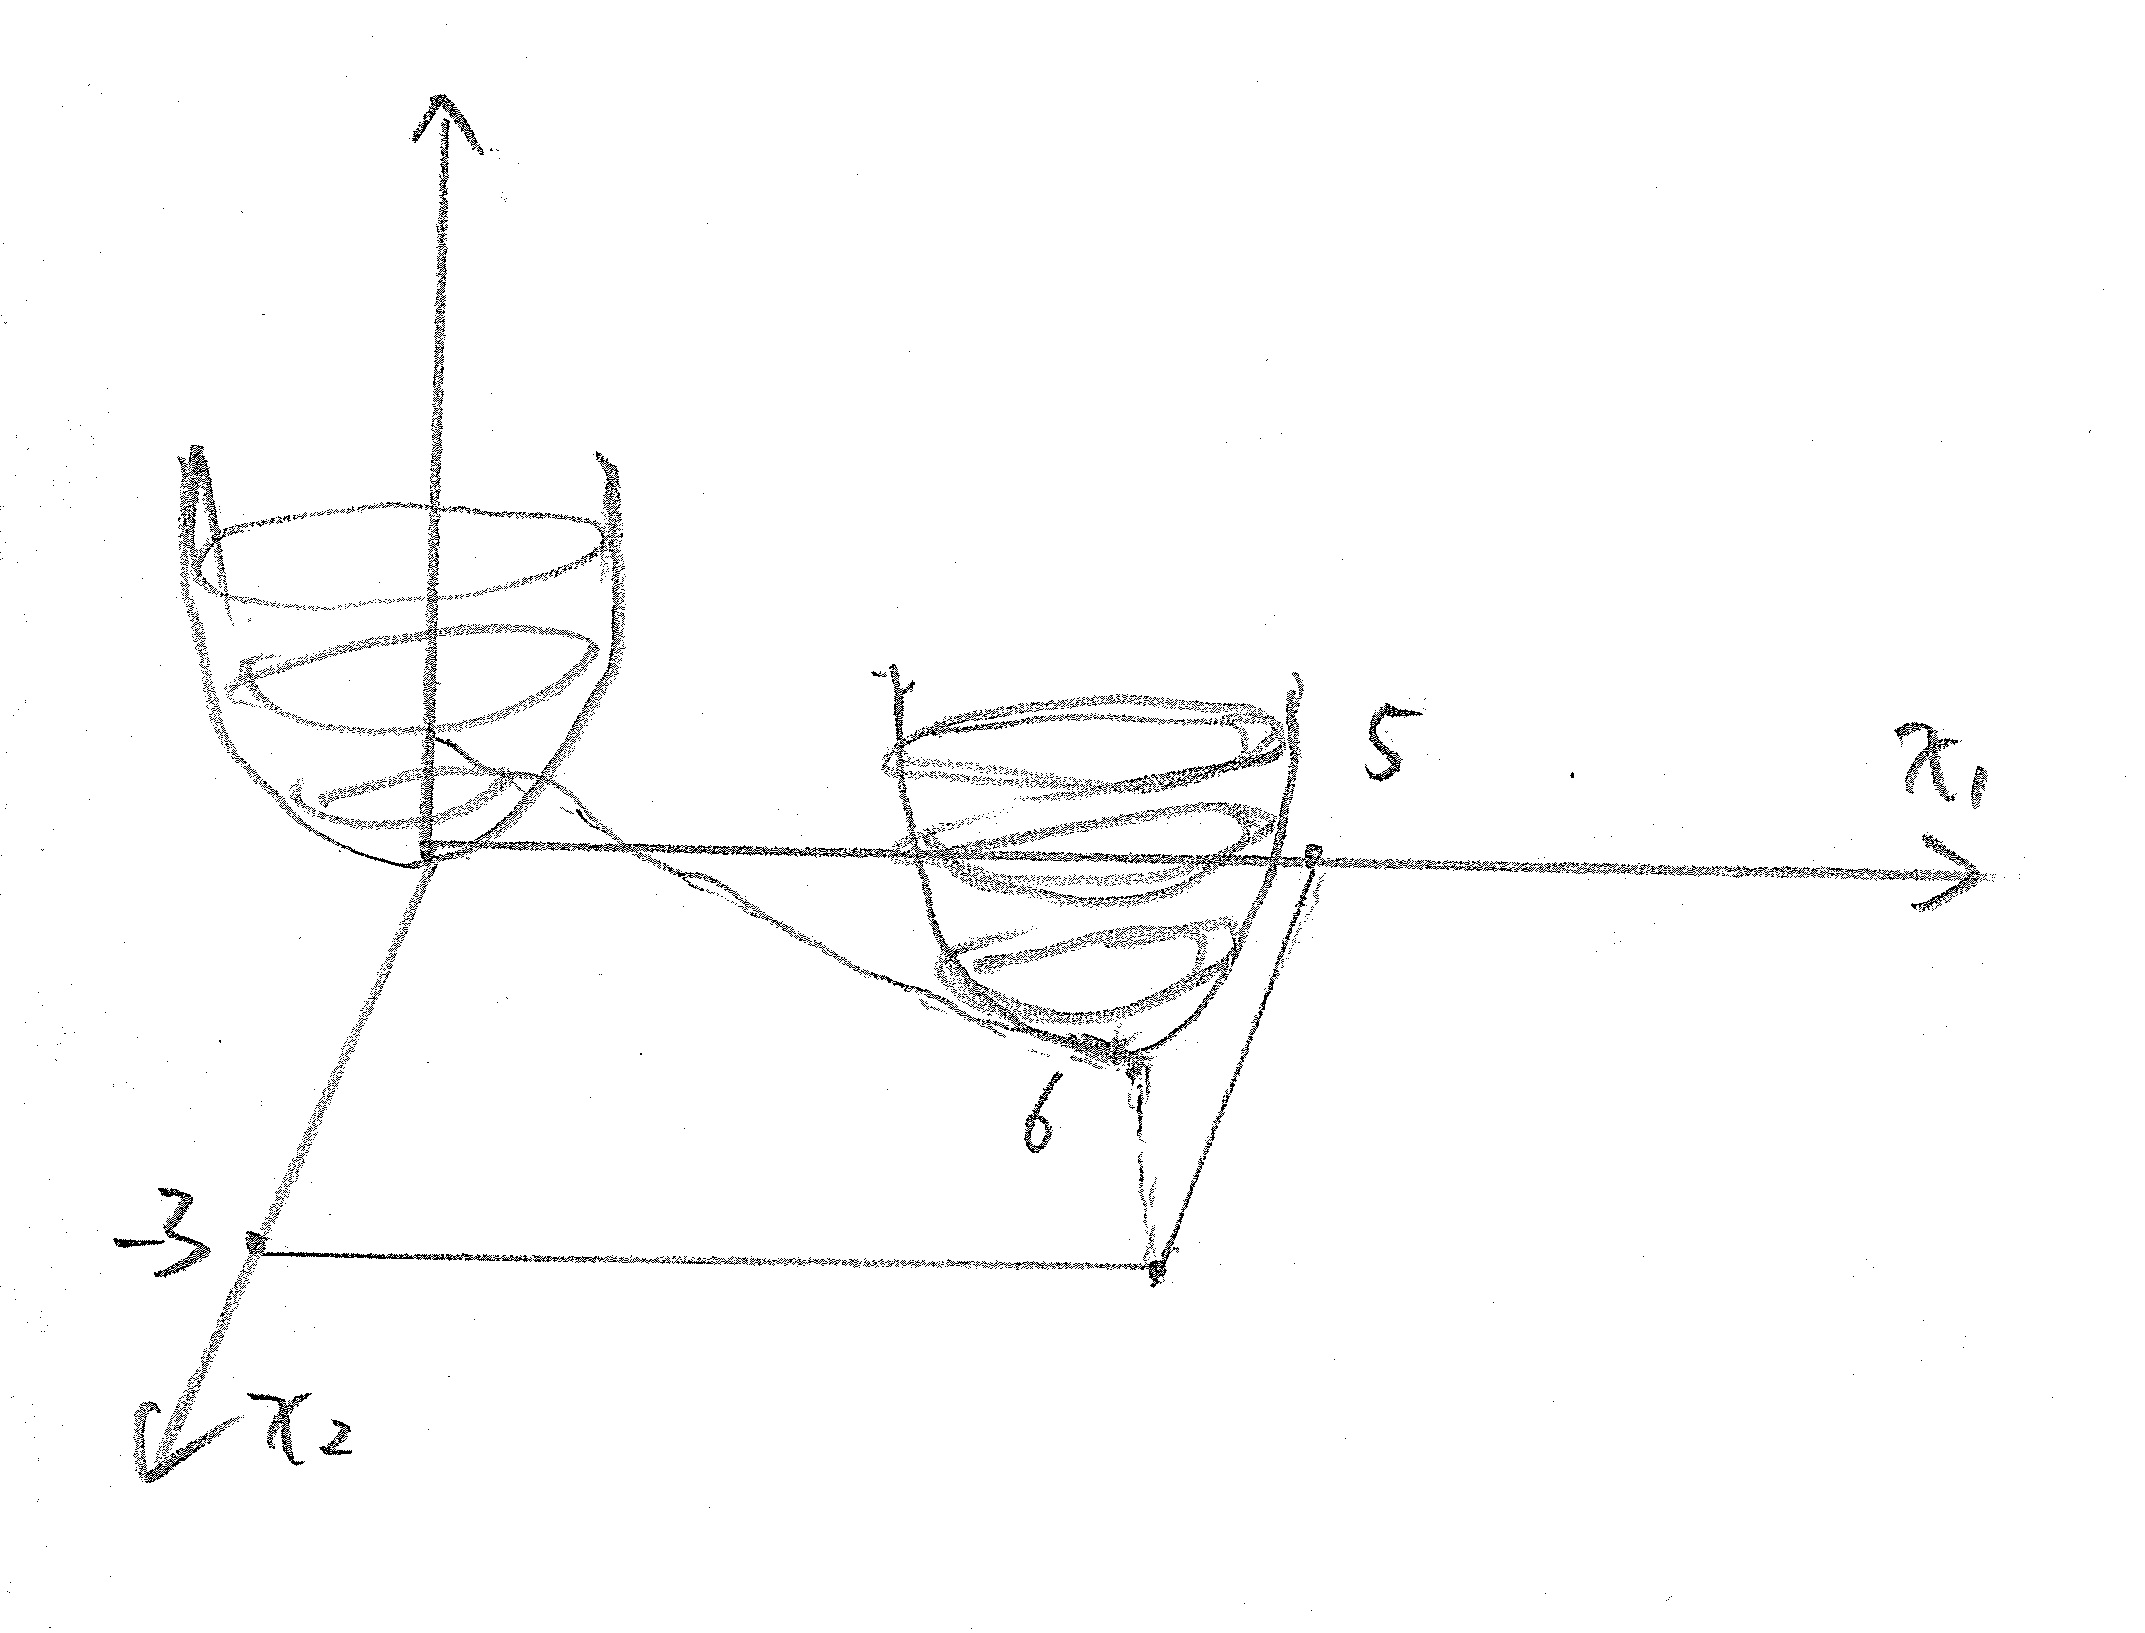 5
x₁
6
-3
x₂